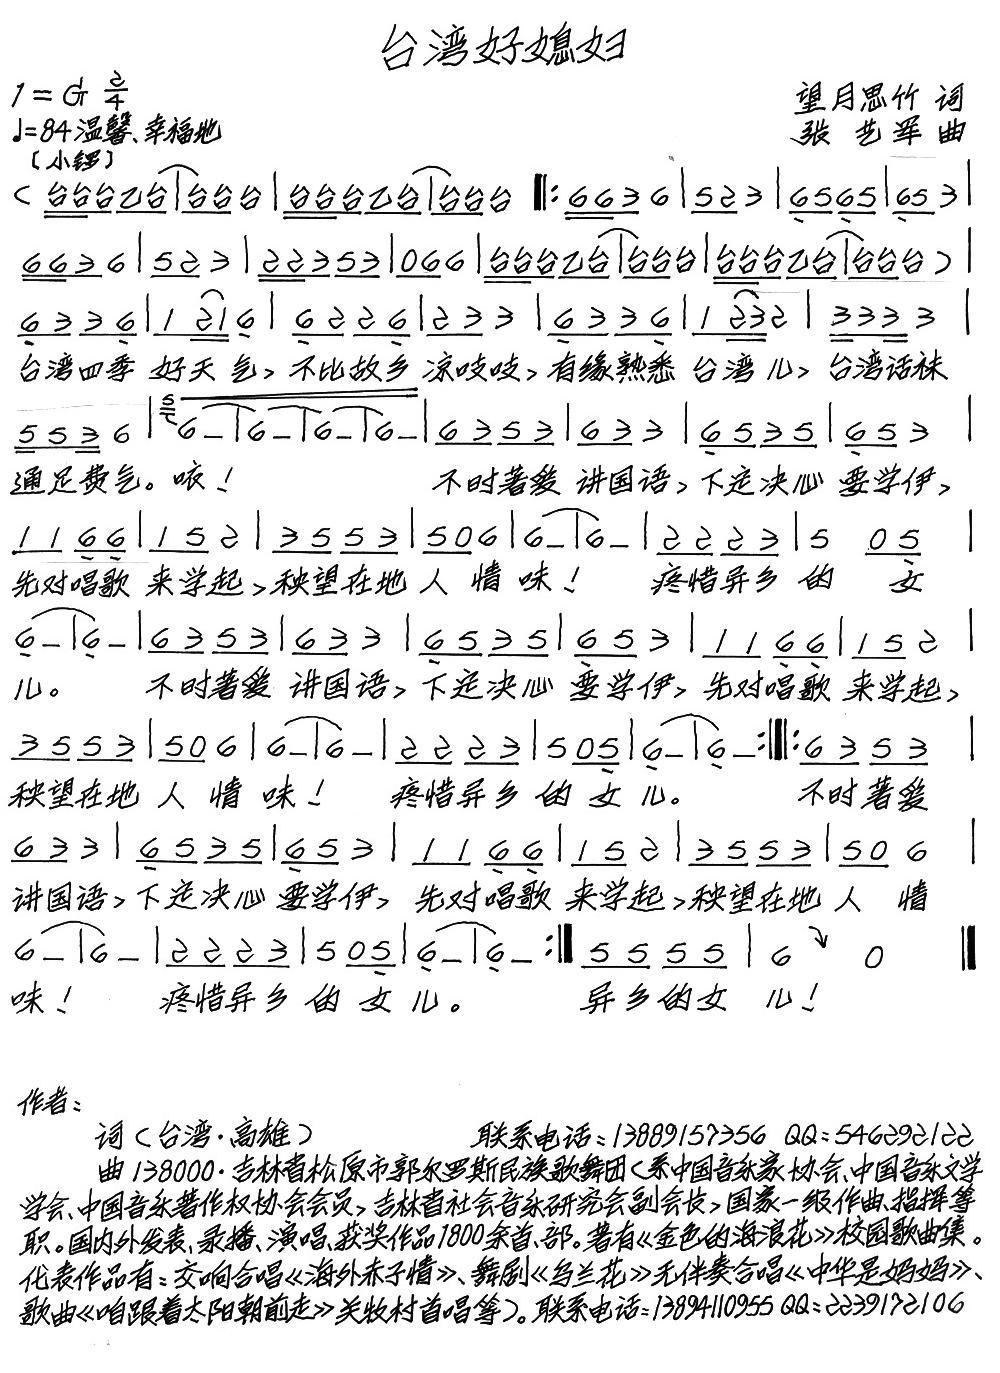 台湾好媳妇
1=G 2/4
望月思竹 词
♩=84 温馨、幸福地
张艺军 曲
(小锣)
( 台台台乙台|台台台|台台台乙台|台台台 ‖: 6636|523|6565|653|
6636|523|22353|066|台台台乙台|台台台|台台台乙台|台台台)|
6336|1216|6226|233|6336|1232|3333|
台湾四季 好天气, 不比故乡 凉吱吱, 有缘熟悉 台湾儿, 台湾话袜
5536|6-|6-|6-|6-|6353|633|6535|653|
通足费气。咳! 不时著爱 讲国语, 下定决心 要学伊,
1166|152|3553|506|6-|6-|2223|5 05|
先对唱歌 来学起, 秧望在地 人情味! 疼惜异乡的 女
6-|6-|6353|633|6535|653|1166|152|
儿。 不时著爱 讲国语, 下定决心 要学伊, 先对唱歌 来学起,
3553|506|6-|6-|2223|505|6-|6-:‖:6353|
秧望在地 人情味! 疼惜异乡的女儿。 不时著爱
633|6535|653|1166|152|3553|506|
讲国语, 下定决心 要学伊, 先对唱歌 来学起, 秧望在地 人情
6-|6-|2223|505|6-|6-:‖5555|6 0‖
味! 疼惜异乡的女儿。 异乡的女 儿!
作者:
词(台湾·高雄) 联系电话:13889157356 QQ:546292122
曲 138000·吉林省松原市郭尔罗斯民族歌舞团(系中国音乐家协会、中国音乐文学
学会、中国音乐著作权协会会员, 吉林省社会音乐研究会副会长, 国家一级作曲、指挥等
职。国内外发表、录播、演唱、获奖作品1800余首、部。著有《金色的海浪花》校园歌曲集。
代表作品有:交响合唱《海外赤子情》、舞剧《乌兰花》无伴奏合唱《中华是妈妈》、
歌曲《咱跟着太阳朝前走》关牧村首唱等)。联系电话:13894110955 QQ:2239172106